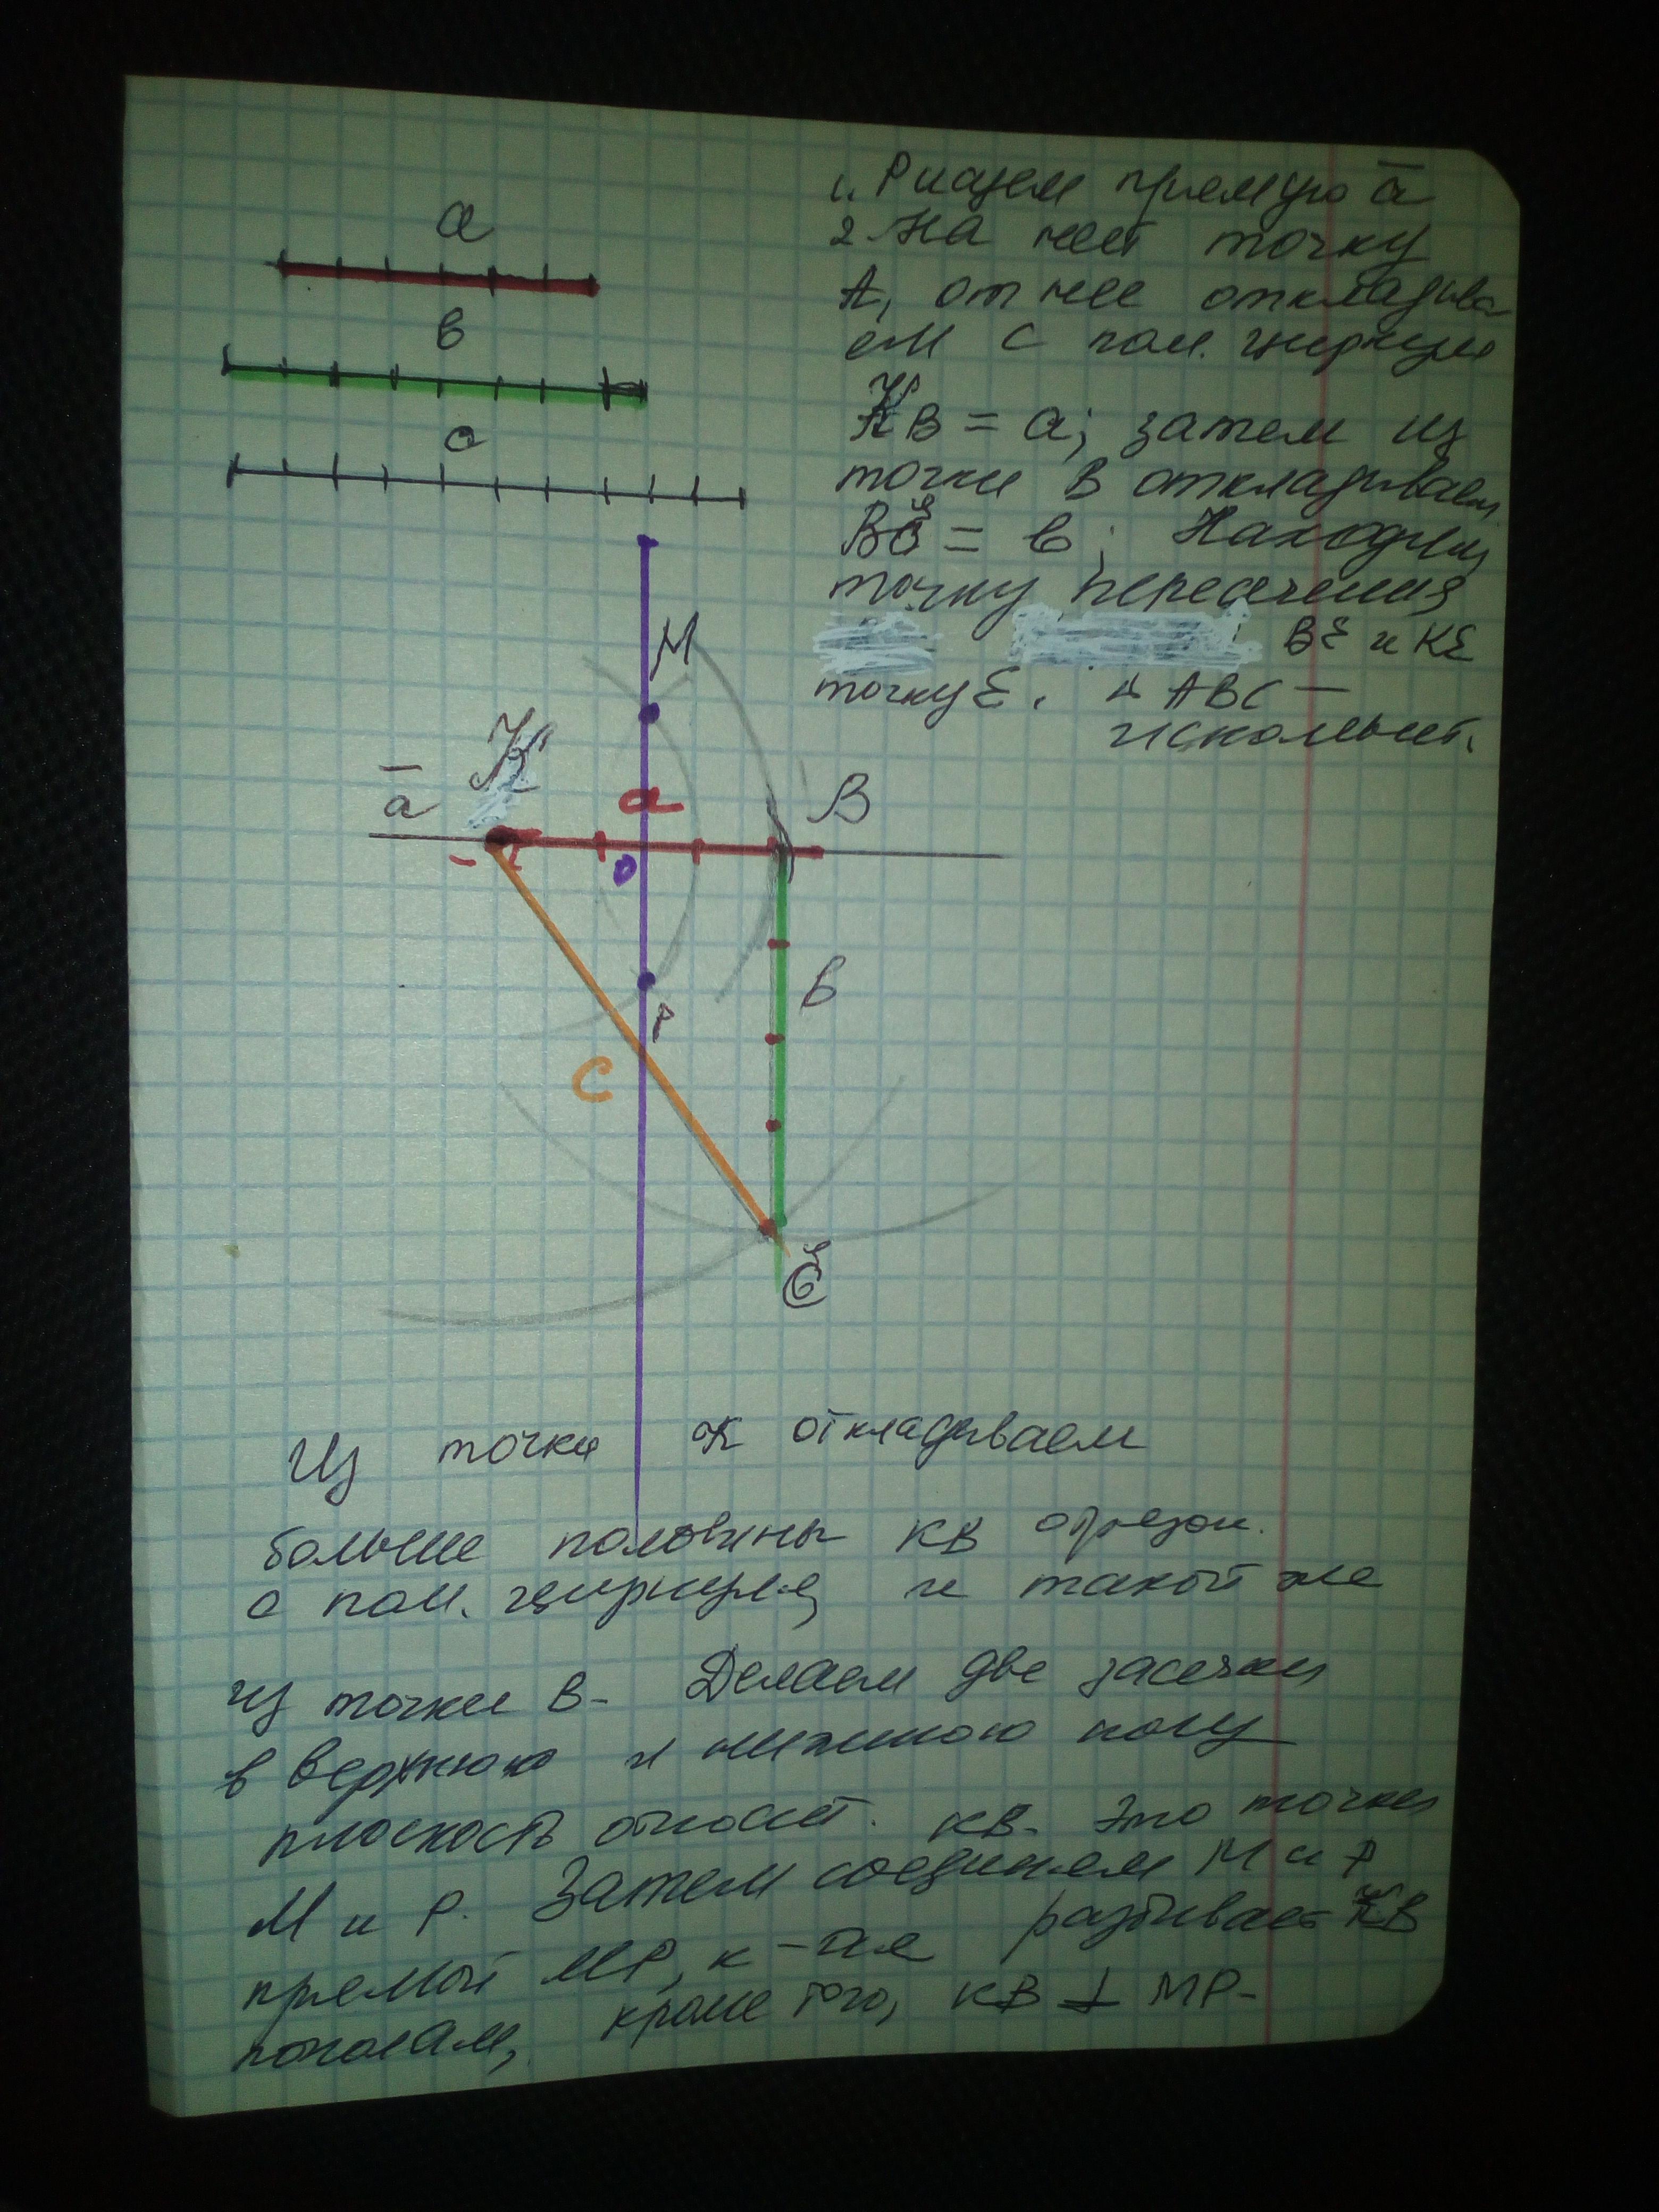 a
в
c
1. Рисуем прямую a̅
2. На ней точку
A, от нее откладыва
ем с пом. циркуля
KB = a; затем из
точки B откладываем
BE = в; Находим
точку пересечения
BE и KE
точку E. Δ ABC —
искомый.
M
K
a
B
a̅
O
B
P
C
E
Из точки K откладываем
больше половины KB отрезок
с пом. циркуля, и такой же
из точки B. Делаем две засечки
в верхнюю и нижнюю полу
плоскость относит. KB. Это точки
M и P. Затем соединяем M и P
прямой MP, к-ая разбивает KB
пополам, кроме того, KB ⊥ MP.